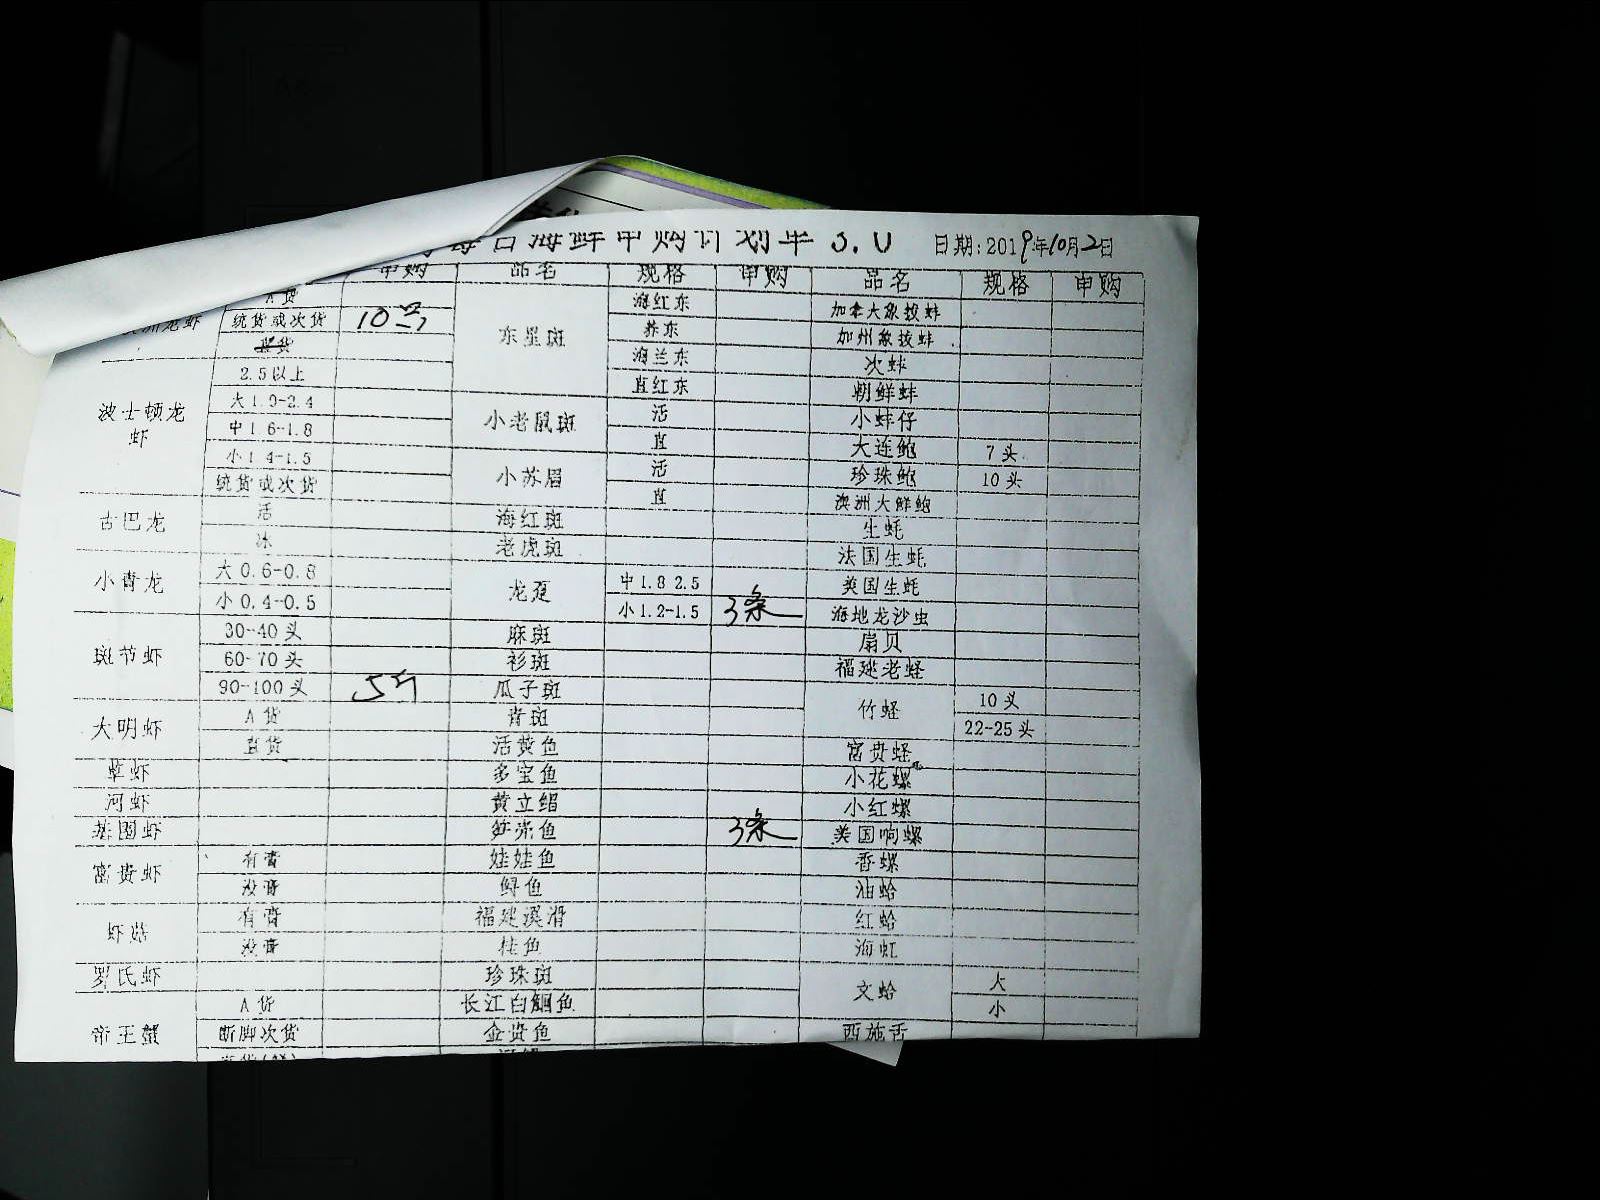 每日海鲜申购计划单 3.0 日期: 2019年10月2日
申购 品名 规格 申购 品名 规格 申购
A 货 海红东 加拿大象拔蚌
洲龙虾 统货或次货 东星斑 养东 加州象拔蚌
直货 海兰东 次蚌
2.5以上 直红东 朝鲜蚌
波士顿龙虾 大1.9-2.4 小老鼠斑 活 小蚌仔
中1.6-1.8 直 大连鲍 7头
小1.4-1.5 小苏眉 活 珍珠鲍 10头
统货或次货 直 澳洲大鲜鲍
古巴龙 活 海红斑 生蚝
冰 老虎斑 法国生蚝
小青龙 大0.6-0.8 龙趸 中1.8 2.5 美国生蚝
小0.4-0.5 小1.2-1.5 3条 海地龙沙虫
斑节虾 30-40头 麻斑 扇贝
60-70头 杉斑 福建老蛏
90-100头 瓜子斑 竹蛏 10头
大明虾 A 货 青斑 22-25头
直货 活黄鱼 富贵蛏
草虾 多宝鱼 小花螺
河虾 黄立鲳 小红螺
基围虾 笋壳鱼 3条 美国响螺
富贵虾 有膏 娃娃鱼 香螺
没膏 鲟鱼 油蛤
虾菇 有膏 福建溪滑 红蛤
没膏 桂鱼 海虹
罗氏虾 珍珠斑 文蛤 大
帝王蟹 A 货 长江白鮰鱼 小
断脚次货 金贵鱼 西施舌